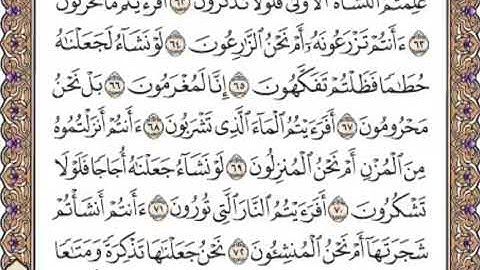 عَلِمْتُمُ النَّشْأَةَ الْأُولَىٰ فَلَوْلَا تَذَكَّرُونَ ٦٢ أَفَرَءَيْتُم مَّا تَحْرُثُونَ
٦٣ ءَأَنتُمْ تَزْرَعُونَهُۥٓ أَمْ نَحْنُ الزَّارِعُونَ ٦٤ لَوْ نَشَآءُ لَجَعَلْنَاهُ
حُطَامًا فَظَلْتُمْ تَفَكَّهُونَ ٦٥ إِنَّا لَمُغْرَمُونَ ٦٦ بَلْ نَحْنُ
مَحْرُومُونَ ٦٧ أَفَرَءَيْتُمُ الْمَآءَ الَّذِي تَشْرَبُونَ ٦٨ ءَأَنتُمْ أَنزَلْتُمُوهُ
مِنَ الْمُزْنِ أَمْ نَحْنُ الْمُنزِلُونَ ٦٩ لَوْ نَشَآءُ جَعَلْنَاهُ أُجَاجًا فَلَوْلَا
تَشْكُرُونَ ٧٠ أَفَرَءَيْتُمُ النَّارَ الَّتِي تُورُونَ ٧١ ءَأَنتُمْ أَنشَأْتُمْ
شَجَرَتَهَآ أَمْ نَحْنُ الْمُنشِـُٔونَ ٧٢ نَحْنُ جَعَلْنَاهَا تَذْكِرَةً وَمَتَاعًا